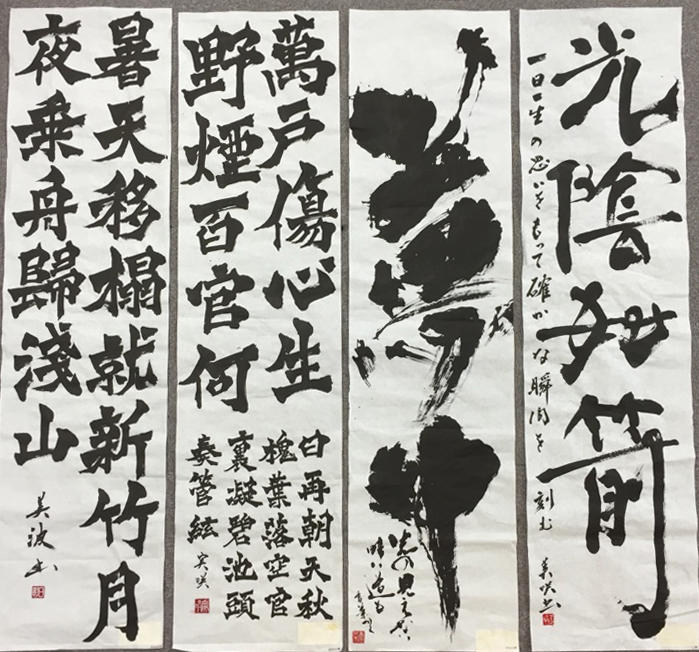 光陰如箭
一日一生の思いをもって確かな瞬間を刻む 美咲書
夢中
萬戸傷心生
野煙百官何
日再朝天秋
槐葉落空宮
裏凝碧池頭
奏管絃 実咲
暑天移榻就新竹月
夜乗舟歸淺山
美波書